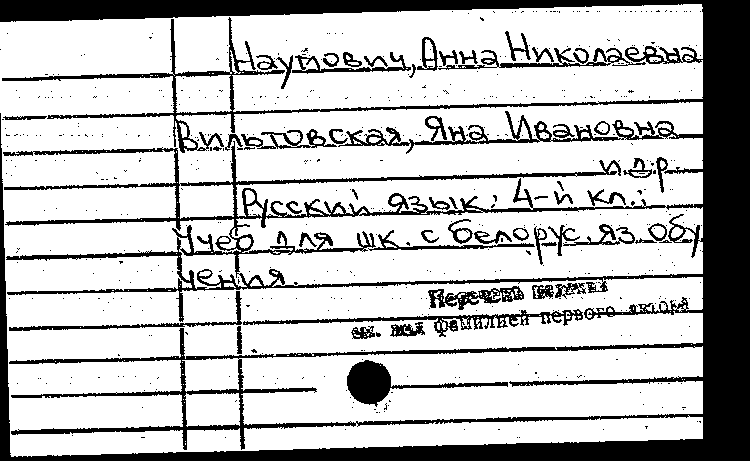 Наумович, Анна Николаевна
Вильтовская, Яна Ивановна
и др
Русский язык: 4-й кл.:
Учеб для шк. с белорус. яз. обу
чения.
Перечень изданий
см. под фамилией первого автора